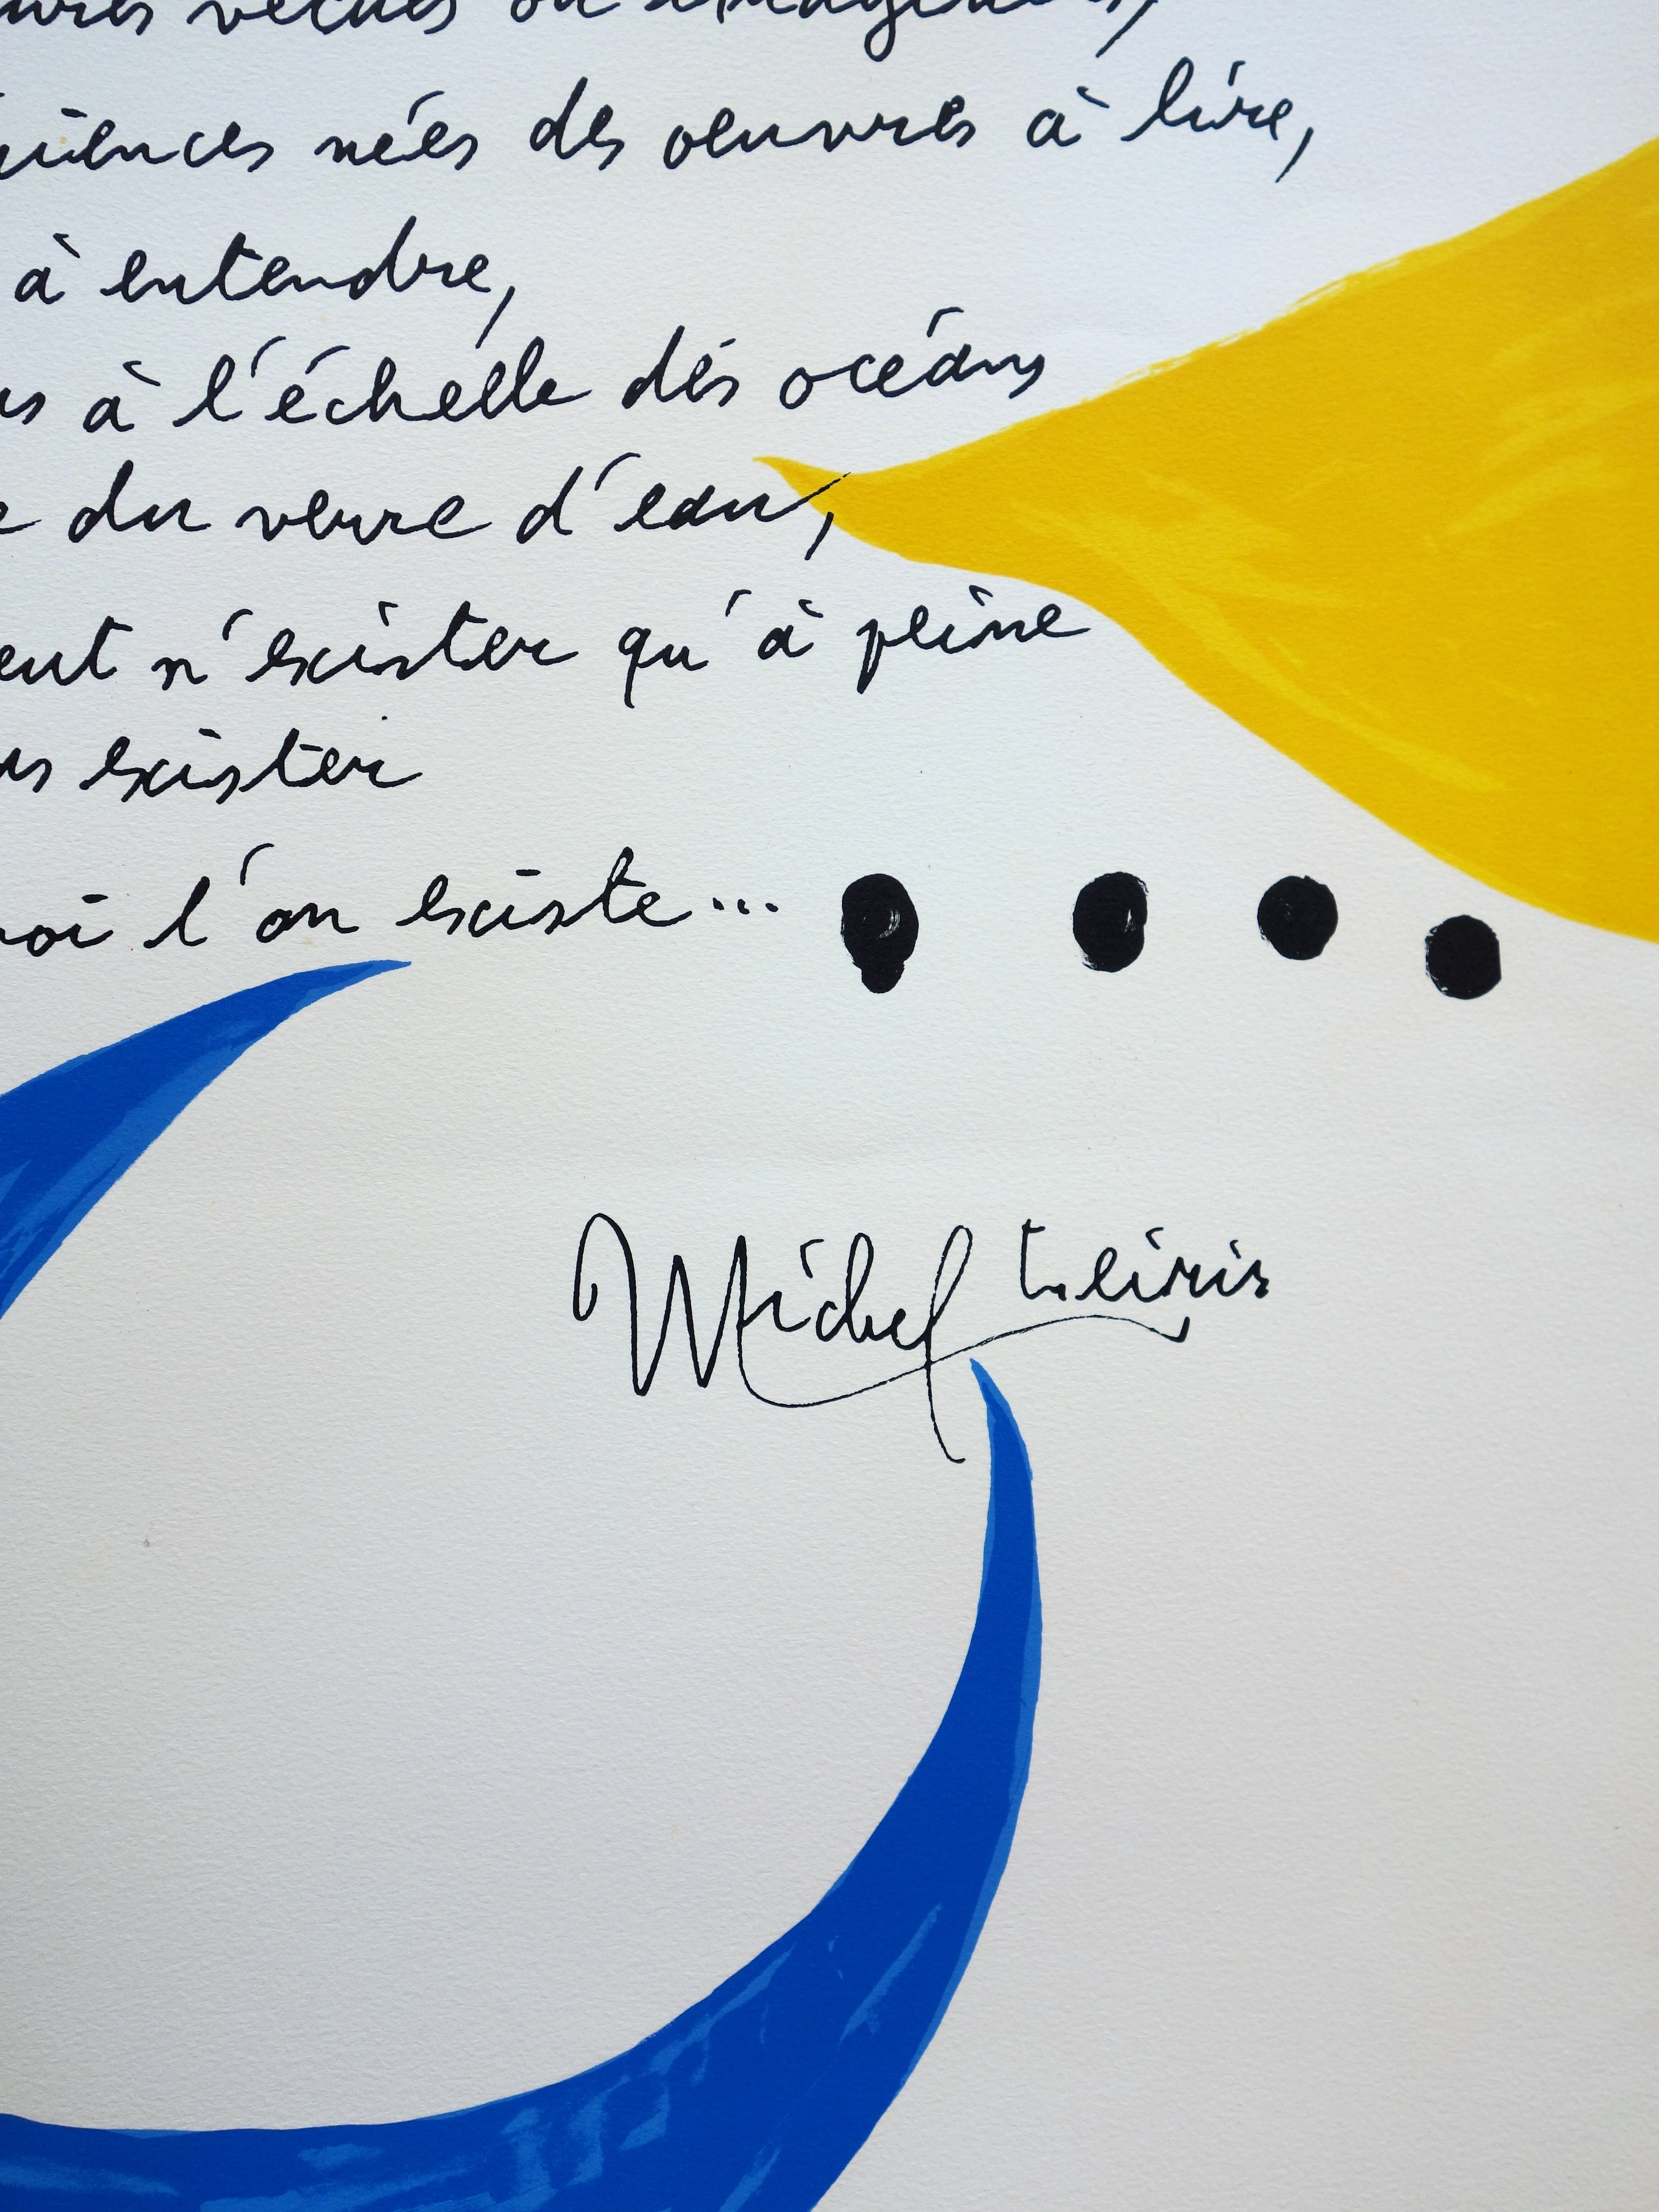 vécues ou
nées des oeuvres à lire,
à entendre,
à l'échelle des océans
du verre d'eau,
n'exister qu'à peine
exister
l'on existe...
Michel Leiris